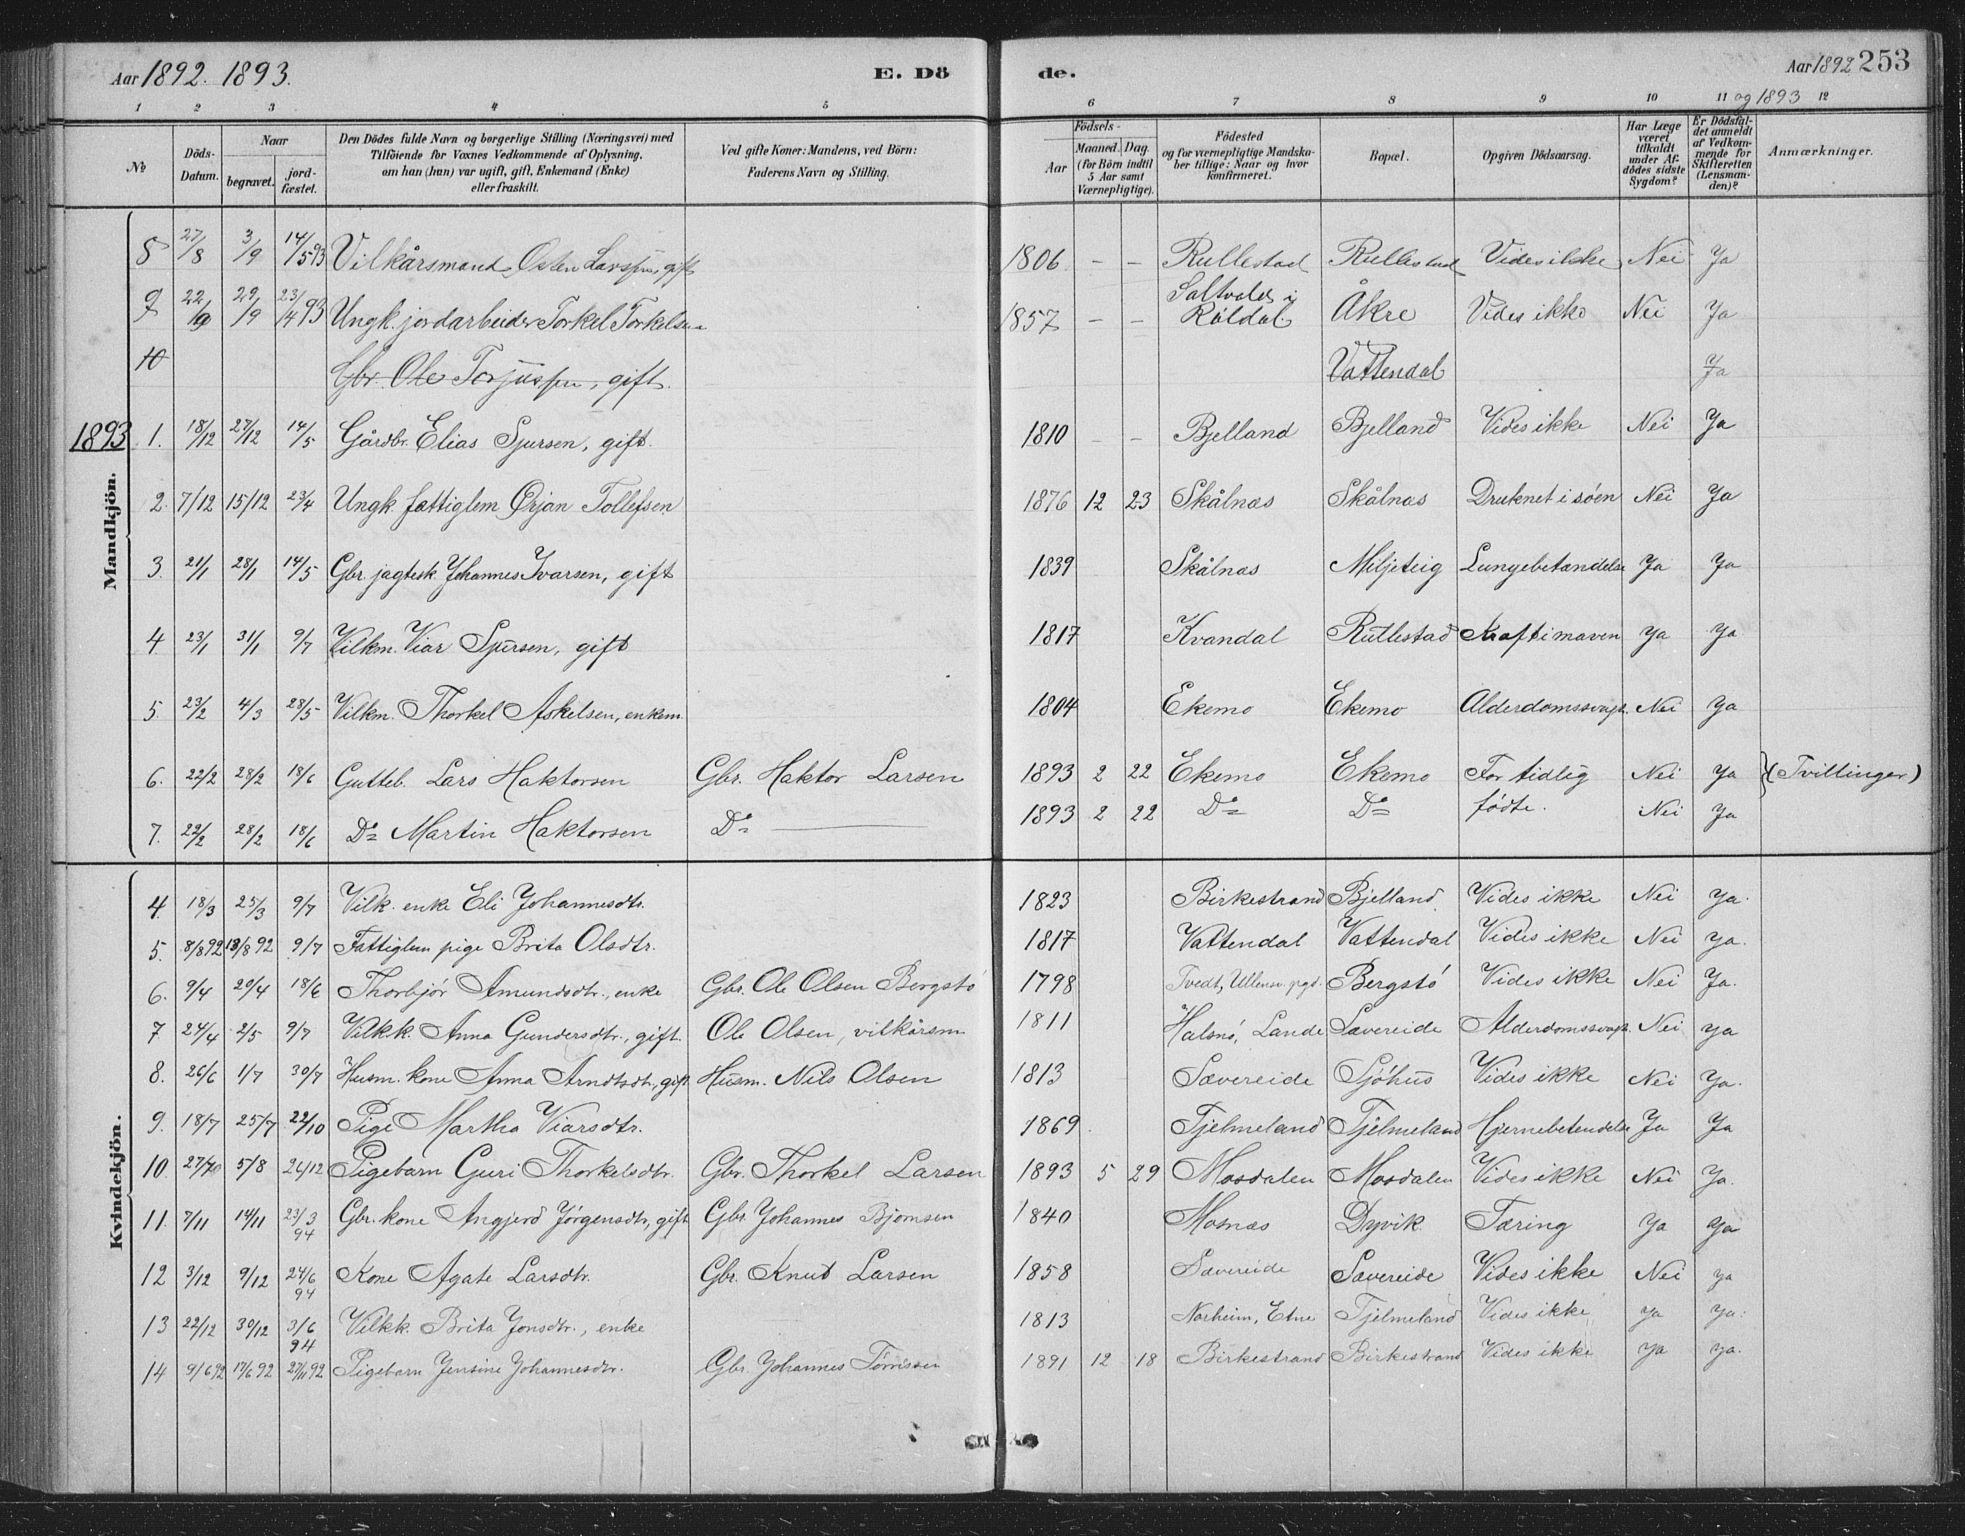 Aar 1892. 1893. E. Dö de. Aar 1892 253
og 1893
1 2 3 4 5 6 7 8 9 10 11 12
No
Döds-Datum.
Naar begravet. jordfæstet.
Den Dödes fulde Navn og borgerlige Stilling (Næringsvei) med Tilföiende for Voxnes Vedkommende af Oplysning, om han (hun) var ugift, gift, Enkemand (Enke) eller fraskilt.
Ved gifte Koner: Mandens, ved Börn: Faderens Navn og Stilling.
Födsels-
Aar Maaned. Dag. (for Börn indtil 5 Aar samt Værnepligtige).
Födested og for værnepligtige Mandskaber tillige: Naar og hvor konfirmeret.
Bopæl.
Opgiven Dödsaarsag.
Har Læge været tilkaldt under Afdödes sidste Sygdom?
Er Dödsfaldet anmeldt af Vedkommende for Skifteretten (Lensmanden)?
Anmærkninger.
Mandkjön.
8 27/8 3/9 14/5 93 Vilkårsmand Osten Larssen, gift 1806 – – Rullestad Rullestad Vides ikke Nei Ja
9 22/9 29/9 23/4 93 Ungk. jordarbeider Torkel Torkelsen 1857 – – Saltvold i Röldal Åkre Vides ikke Nei Ja
10 Gbr. Ole Torjussen, gift. Vattendal Ja
1893 1. 18/12 27/12 14/5 Gårdbr. Elias Sjursen, gift. 1810 – – Bjelland Bjelland Vides ikke Nei Ja
2. 7/12 15/12 23/4 Ungk. fattiglem Ørjan Tollefsen 1876 12 23 Skålnæs Skålnæs Druknet i söen Nei Ja
3. 21/1 28/1 14/5 Gbr. jagtesk. Johannes Ivarsen, gift 1839 Skålnæs Miljeteig Lungebetændelse Ja Ja
4 23/1 31/1 9/7 Vilkm. Viar Sjursen, gift 1817 Kvandal Rullestad Kræft i maven Ja Ja
5. 23/2 4/3 28/5 Vilkm. Thorkel Askelsen, enkem. 1804 Ekemo Ekemo Alderdomssvagh. Nei Ja
6. 22/2 28/2 18/6 Gutteb. Lars Haktorsen Gbr. Haktor Larsen 1893 2 22 Ekemo Ekemo For tidlig Nei Ja (Tvillinger)
7. 22/2 28/2 18/6 Do Martin Haktorsen Do 1893 2 22 Do Do födte. Nei Ja
Kvindekjön.
4 18/3 25/3 9/7 Vilk. enke Eli Johannesdtr. 1823 Birkestrand Bjelland Vides ikke Nei Ja.
5. 8/8 92 13/8 92 9/7 Fattiglem pige Brita Olsdtr. 1817 Vattendal Vattendal Vides ikke Nei Ja.
6. 9/4 20/4 18/6 Thorbjör Amundsdtr., enke Gbr. Ole Olsen Bergstö 1798 Tvedt, Ullensv. pgd. Bergstö Vides ikke Nei Ja.
7 24/4 2/5 9/7 Vilkk. Anna Gundersdtr., gift. Ole Olsen, vilkårsm 1811 Halsnö, Lande Sævereide Alderdomssvagh. Nei Ja
8. 26/6 1/7 30/7 Husm. kone Anna Arndtsdtr., gift Husm. Nils Olsen 1813 Sævereide Sjöhus Vides ikke Nei Ja.
9. 18/7 25/7 22/10 Pige Martha Viarsdtr. 1869 Tjelmeland Tjelmeland Hjernebetendelse Ja Ja
10. 27/7 5/8 26/12 Pigebarn Guri Thorkelsdtr. Gbr. Thorkel Larsen 1893 5 29 Mosdalen Mosdalen Vides ikke Nei Ja.
11. 7/11 14/11 23/3 94 Gbr. kone Angjerd Jörgensdtr, gift Gbr. Johannes Bjørnsen 1840 Mosnæs Dyvik Tæring Ja Ja
12 3/12 9/12 24/6 94 Kone Agate Larsdtr. Gbr. Knut Larsen 1858 Sævereide Sævereide Vides ikke Nei Ja
13 22/12 30/12 3/6 94 Vilkk. Brita Jonsdtr., enke 1813 Norheim, Etne Tjelmeland Vides ikke Ja Ja.
14 9/6 92 17/6 92 27/11 92 Pigebarn Jensine Johannesdtr. Gbr. Johannes Tørrissen 1891 12 18 Birkestrand Birkestrand Vides ikke Ja Ja.